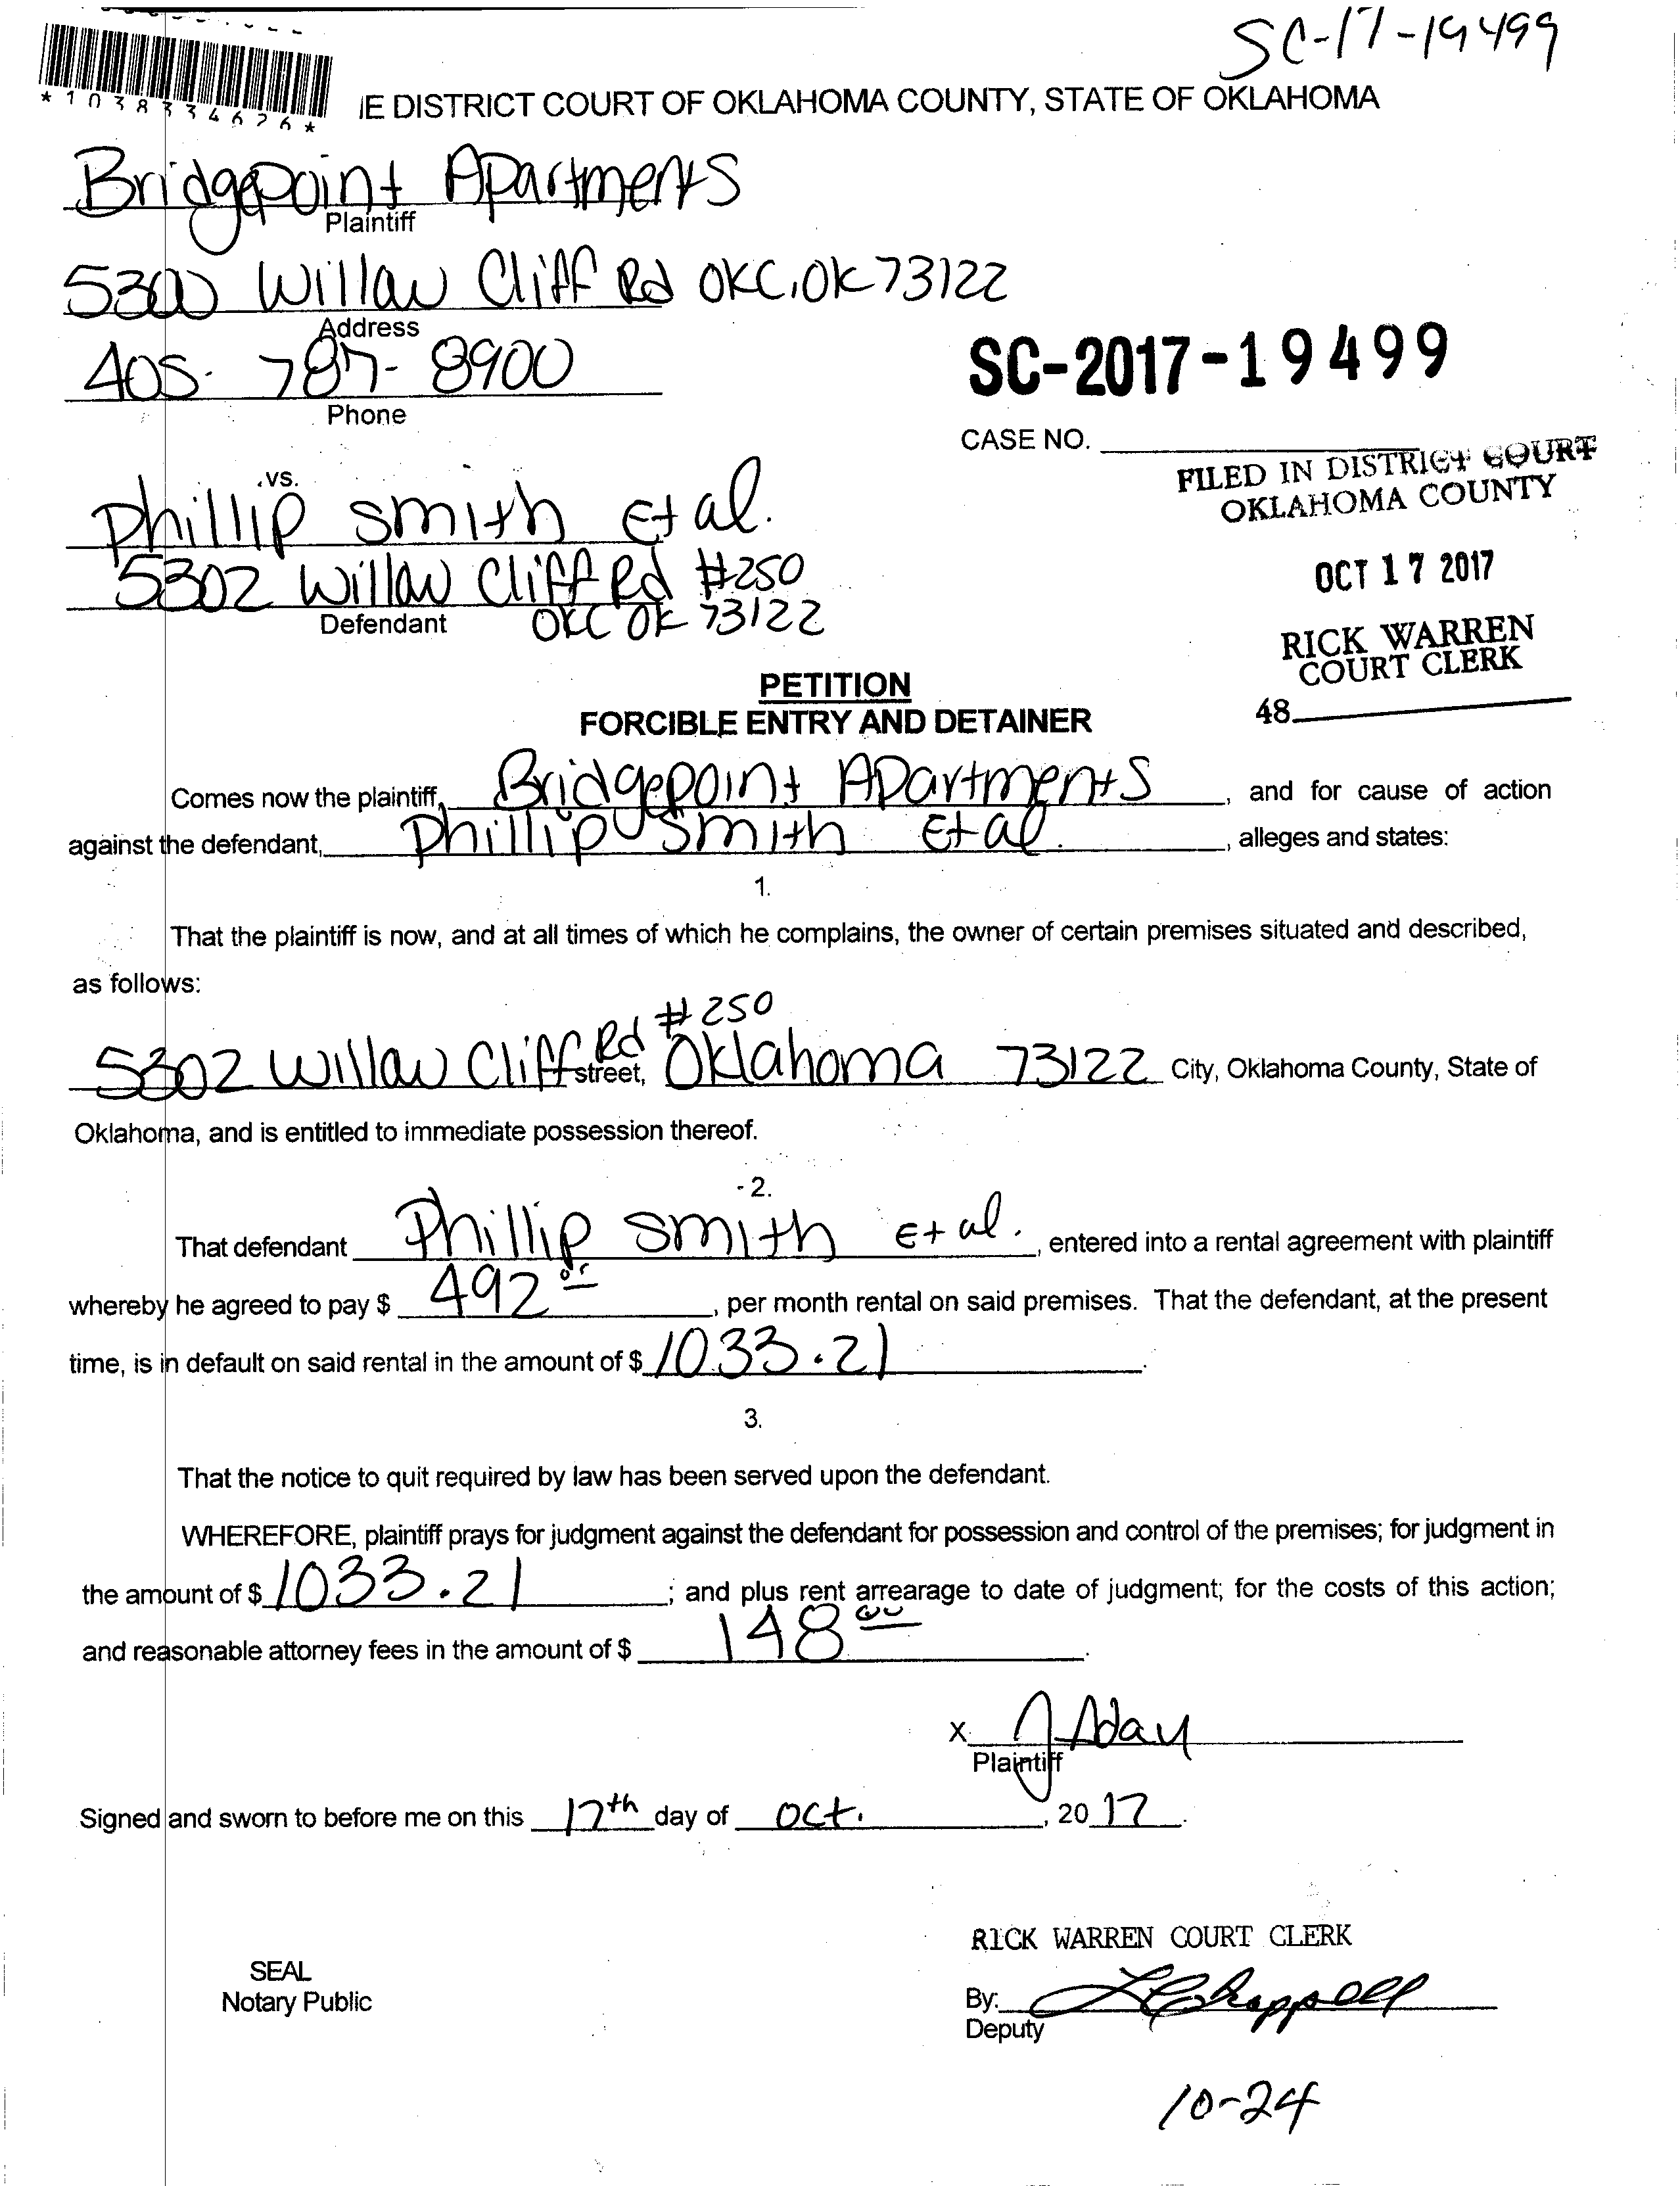 SC-17-19499
*1038334626*
IE DISTRICT COURT OF OKLAHOMA COUNTY, STATE OF OKLAHOMA
Bridgepoint Apartments
Plaintiff
5300 Willow Cliff Rd OKC, OK 73122
Address
405- 787- 8900
Phone
SC-2017-19499
CASE NO.
FILED IN DISTRICT COURT
OKLAHOMA COUNTY
OCT 17 2017
RICK WARREN
COURT CLERK
48
vs.
Phillip Smith Et al.
5302 Willow Cliff Rd #250
Defendant OKC OK 73122
PETITION
FORCIBLE ENTRY AND DETAINER
Comes now the plaintiff, Bridgepoint Apartments, and for cause of action
against the defendant, Phillip Smith Et al., alleges and states:
1.
That the plaintiff is now, and at all times of which he complains, the owner of certain premises situated and described,
as follows:
5302 Willow Cliff Rd #250 street, Oklahoma 73122 City, Oklahoma County, State of
Oklahoma, and is entitled to immediate possession thereof.
2.
That defendant Phillip Smith Et al., entered into a rental agreement with plaintiff
whereby he agreed to pay $ 492 00, per month rental on said premises. That the defendant, at the present
time, is in default on said rental in the amount of $ 1033.21.
3.
That the notice to quit required by law has been served upon the defendant.
WHEREFORE, plaintiff prays for judgment against the defendant for possession and control of the premises; for judgment in
the amount of $ 1033.21; and plus rent arrearage to date of judgment; for the costs of this action;
and reasonable attorney fees in the amount of $ 148 00.
X J Aday
Plaintiff
Signed and sworn to before me on this 17th day of Oct., 2017.
RICK WARREN COURT CLERK
SEAL
Notary Public
By: L Chappell
Deputy
10-24